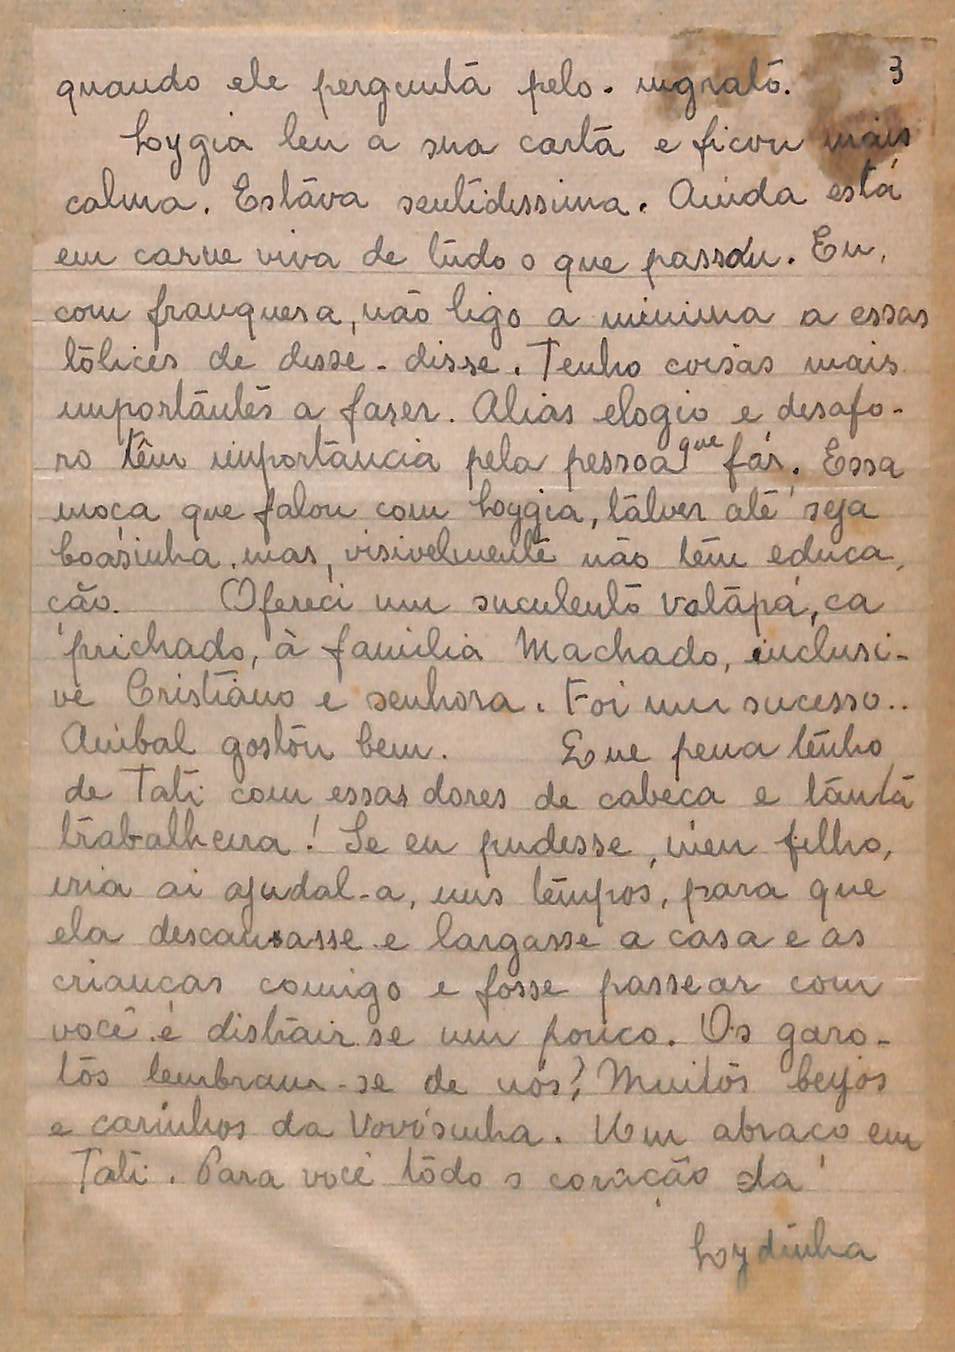 3
quando ele pergunta pelo. ingrato.
Lygia leu a sua carta e ficou mais
calma. Estava sentidissima. Ainda está
em carne viva de tudo o que passou. Eu,
com franquesa, não ligo a minima a essas
tolices de disse-disse. Tenho coisas mais
importantes a fazer. Alias elogio e desafo-
ro têm importancia pela pessoa que fás. Essa
moça que falou com Lygia, talvez até seja
boasinha, mas, visivelmente não tem educa-
ção. Ofereci um suculento vatapá, ca
prichado, à familia Machado, inclusi-
ve Cristiano e senhora. Foi um sucesso..
Anibal gostou bem. Que pena tenho
de Tati com essas dores de cabeça e tanta
trabalheira! Se eu pudesse, meu filho,
iria ai ajudal-a, uns tempos, para que
ela descansasse e largasse a casa e as
crianças comigo e fosse passear com
você e distrair-se um pouco. Os garo-
tos lembram-se de nós? Muitos beijos
e carinhos da Vovósinha. Um abraço em
Tati. Para você todo o coração da
Lydinha